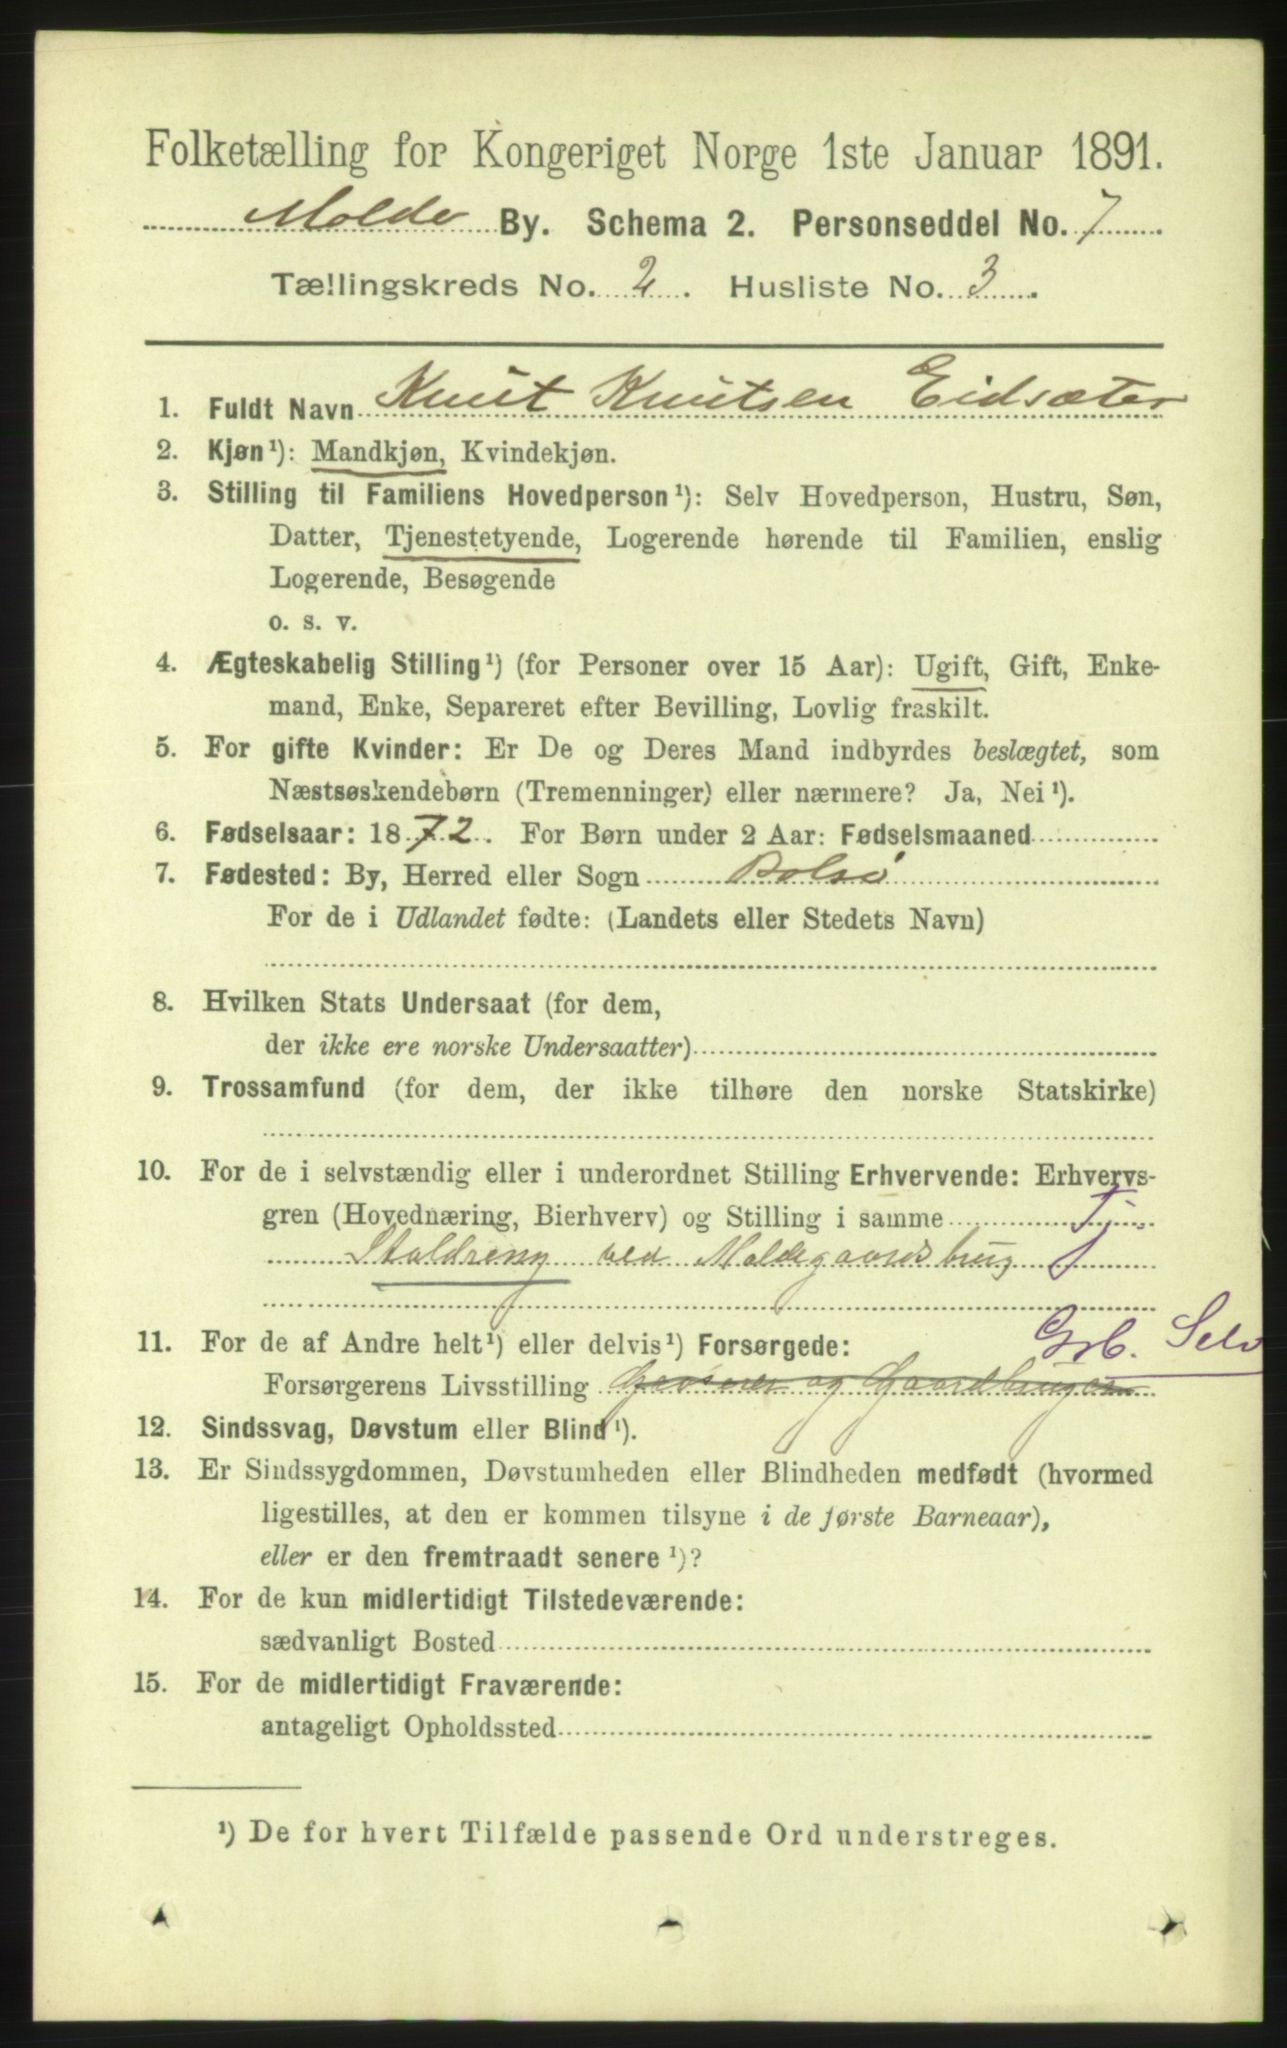 Folketælling for Kongeriget Norge 1ste Januar 1891.
Molde By. Schema 2. Personseddel No. 7
Tællingskreds No. 2. Husliste No. 3.
1. Fuldt Navn Knut Knutsen Eidsæter
2. Kjøn¹): Mandkjøn, Kvindekjøn.
3. Stilling til Familiens Hovedperson¹): Selv Hovedperson, Hustru, Søn,
Datter, Tjenestetyende, Logerende hørende til Familien, enslig
Logerende, Besøgende
o. s. v.
4. Ægteskabelig Stilling¹) (for Personer over 15 Aar): Ugift, Gift, Enke-
mand, Enke, Separeret efter Bevilling, Lovlig fraskilt.
5. For gifte Kvinder: Er De og Deres Mand indbyrdes beslægtet, som
Næstsøskendebørn (Tremenninger) eller nærmere? Ja, Nei¹).
6. Fødselsaar: 1872. For Børn under 2 Aar: Fødselsmaaned
7. Fødested: By, Herred eller Sogn Bolsø
For de i Udlandet fødte: (Landets eller Stedets Navn)
8. Hvilken Stats Undersaat (for dem,
der ikke ere norske Undersaatter)
9. Trossamfund (for dem, der ikke tilhøre den norske Statskirke)
10. For de i selvstændig eller i underordnet Stilling Erhvervende: Erhvervs-
gren (Hovednæring, Bierhverv) og Stilling i samme Tj.
Staldreng ved Moldegaards brug
11. For de af Andre helt¹) eller delvis¹) Forsørgede: Grb. Selv
Forsørgerens Livsstilling og Gaardbruger
12. Sindssvag, Døvstum eller Blind¹).
13. Er Sindssygdommen, Døvstumheden eller Blindheden medfødt (hvormed
ligestilles, at den er kommen tilsyne i de første Barneaar),
eller er den fremtraadt senere¹)?
14. For de kun midlertidigt Tilstedeværende:
sædvanligt Bosted
15. For de midlertidigt Fraværende:
antageligt Opholdssted
¹) De for hvert Tilfælde passende Ord understreges.